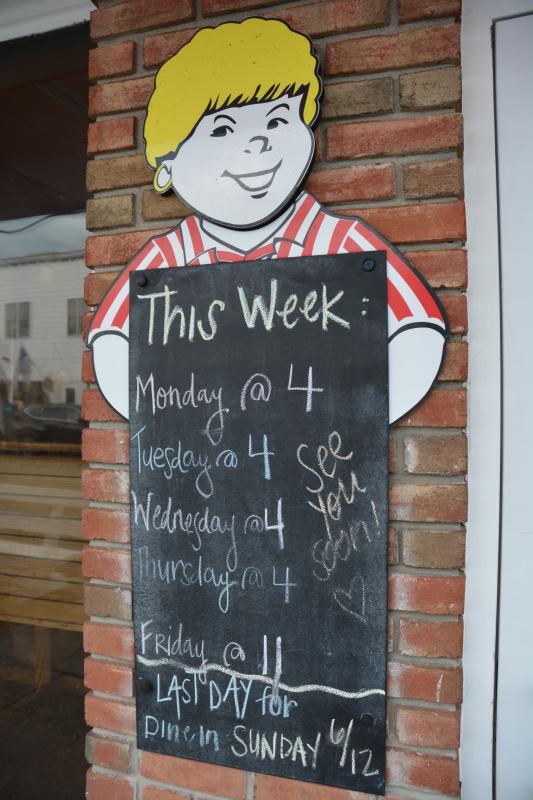 This Week:
Monday @ 4
Tuesday @ 4
Wednesday @ 4
Thursday @ 4
See
You
soon!
Friday @ 11
LAST DAY for
Dine in SUNDAY 6/12